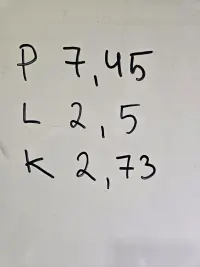 P 7,45
L 2,5
K 2,73